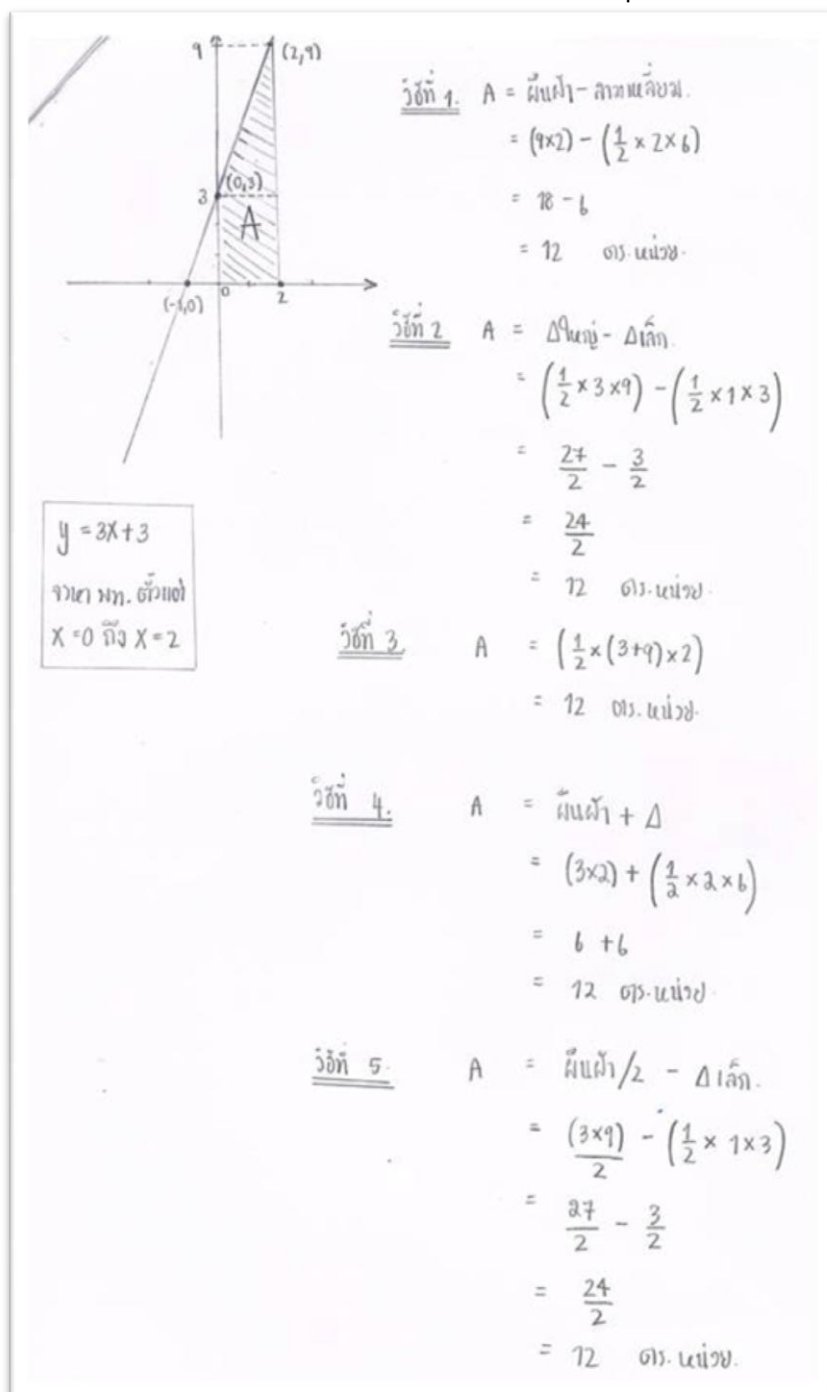 9
(2,9)
(0,3)
3
A
(-1,0)
0
2
y = 3x+3
จงหา พท. ตั้งแต่
x = 0 ถึง x = 2
วิธีที่ 1. A = ผืนผ้า - สามเหลี่ยม.
= (9×2) - (1/2 × 2 × 6)
= 18 - 6
= 12 ตร.หน่วย.
วิธีที่ 2 A = Δใหญ่ - Δเล็ก.
= (1/2 × 3 × 9) - (1/2 × 1 × 3)
= 27/2 - 3/2
= 24/2
= 12 ตร.หน่วย.
วิธีที่ 3. A = (1/2 × (3+9) × 2)
= 12 ตร.หน่วย.
วิธีที่ 4. A = ผืนผ้า + Δ
= (3×2) + (1/2 × 2 × 6)
= 6 + 6
= 12 ตร.หน่วย.
วิธีที่ 5. A = ผืนผ้า/2 - Δเล็ก.
= (3×9)/2 - (1/2 × 1×3)
= 27/2 - 3/2
= 24/2
= 12 ตร.หน่วย.